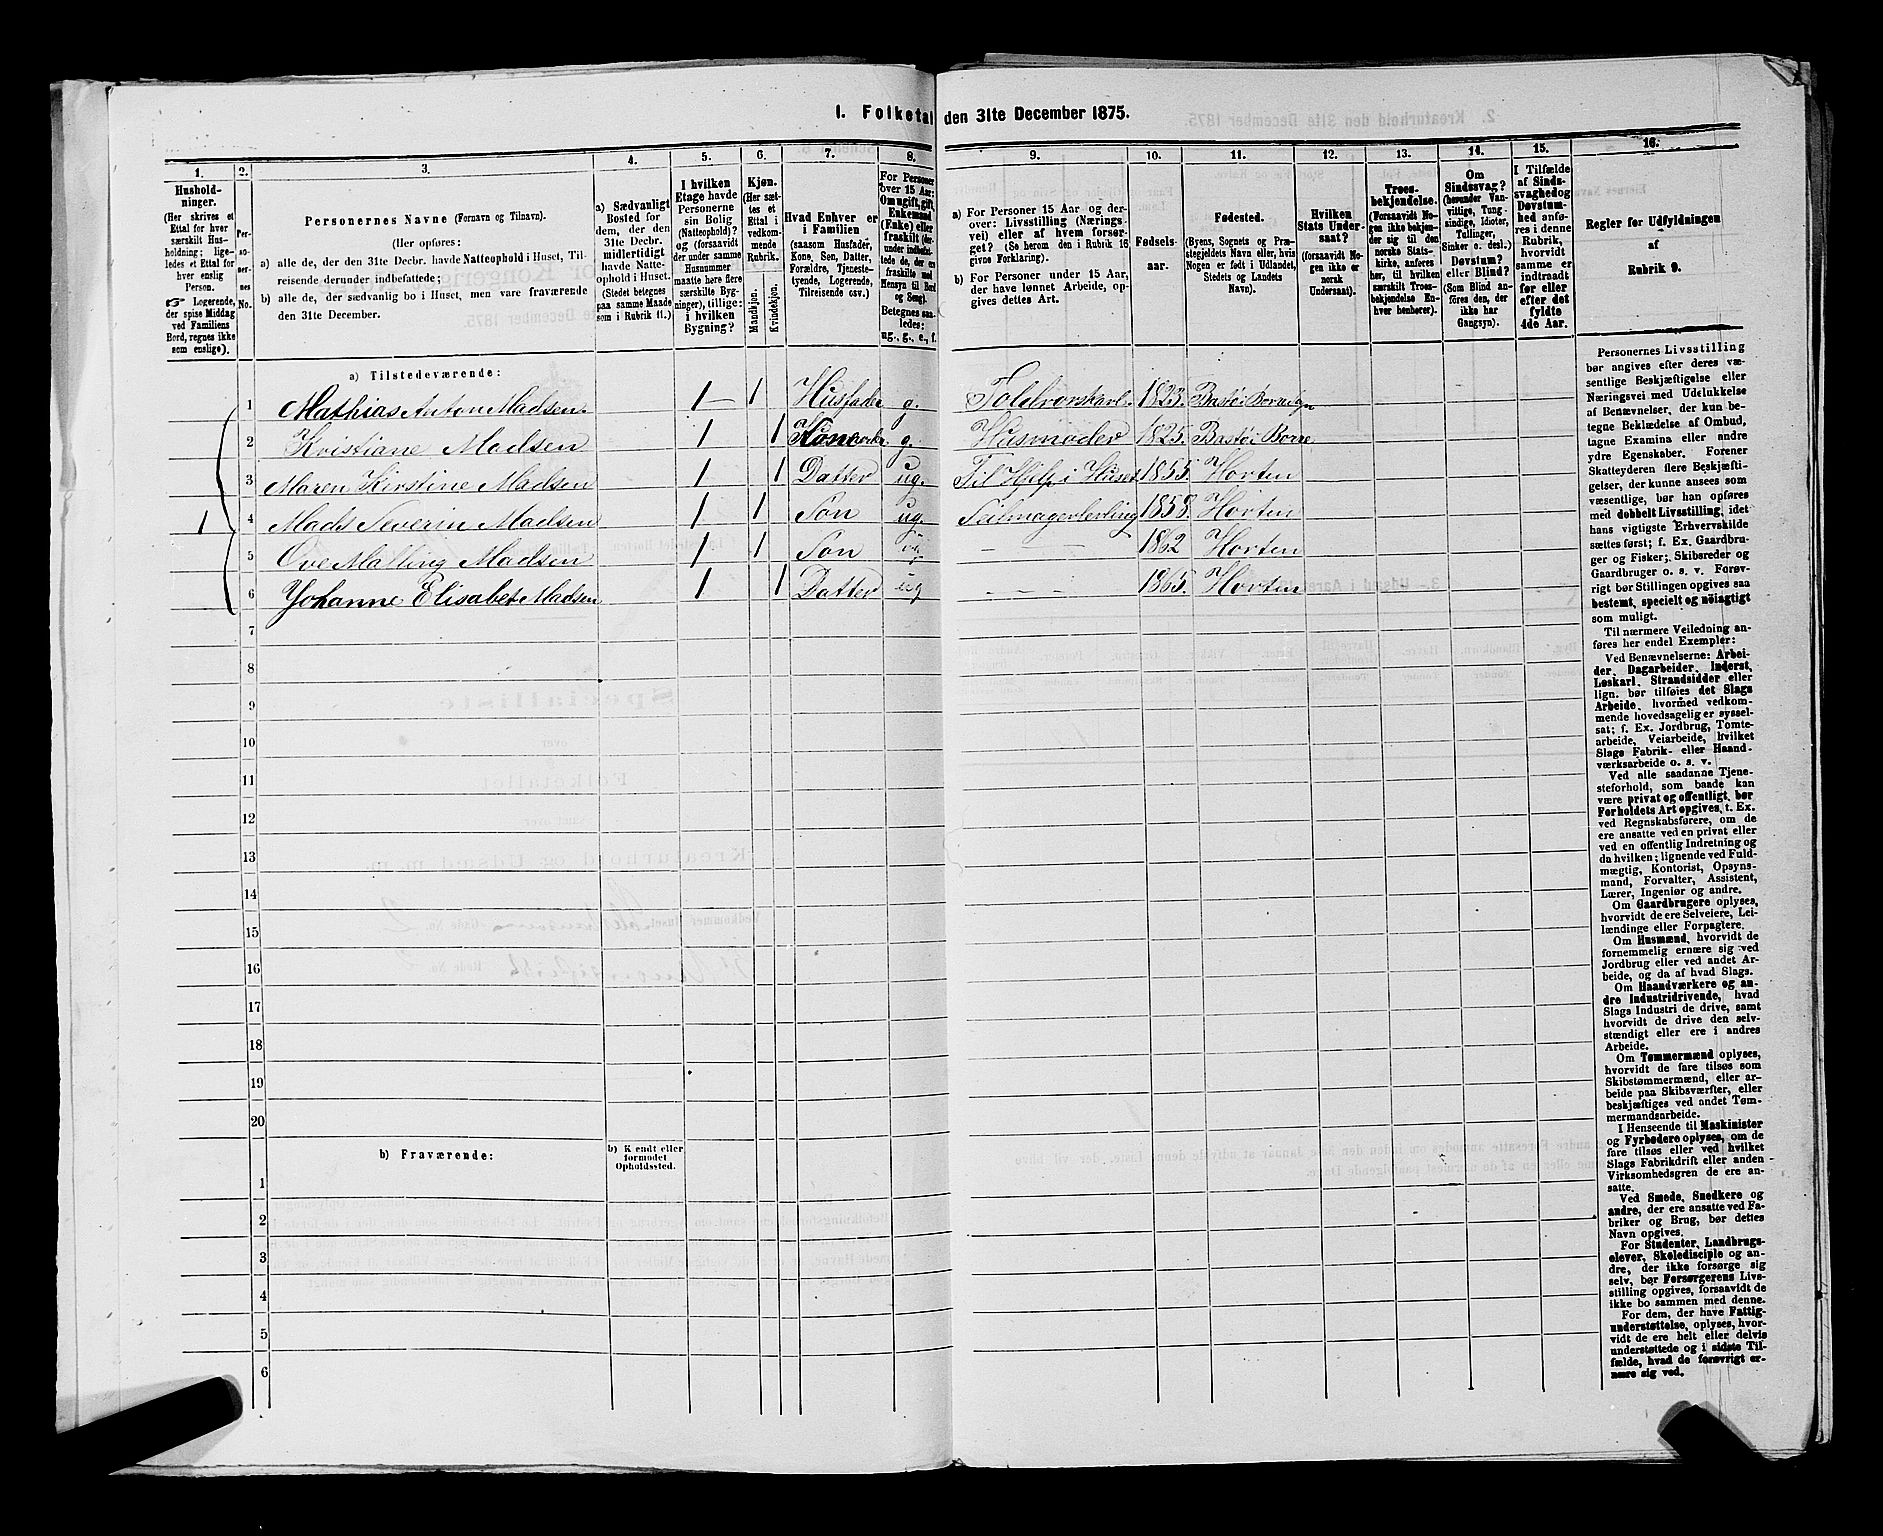 1. Folketal den 31te December 1875.
1. 2. 3. 4. 5. 6. 7. 8. 9. 10. 11. 12. 13. 14. 15. 16.
Husholdninger.
(Her skrives et Ettal for hver særskilt Husholdning; ligeledes et Ettal for hver enslig Person.
☞ Logerende, der spise Middag ved Familiens Bord, regnes ikke som enslige).
Personernes No.
Personernes Navne (Fornavn og Tilnavn).
(Her opføres:
a) alle de, der den 31te Decbr. havde Natteophold i Huset, Tilreisende derunder indbefattede;
b) alle de, der sædvanlig bo i Huset, men vare fraværende den 31te December.
a) Sædvanligt Bosted for dem, der den 31te Decbr. midlertidigt havde Natteophold i Huset.
(Stedet betegnes paa samme Maade som i Rubrik 11.)
I hvilken Etage havde Personerne sin Bolig (Natteophold)?
og (forsaavidt der under samme Husnummer maatte høre flere særskilte Bygninger), tillige: i hvilken Bygning?
Kjøn.
(Her sættes et Ettal i vedkommende Rubrik.
Mandkjøn.
Kvindekjøn.
Hvad Enhver er i Familien
(saasom Husfader, Kone, Søn, Datter, Forældre, Tjenestetyende, Logerende, Tilreisende osv.)
For Personer over 15 Aar: Om ugift, gift, Enkemand (Enke) eller fraskilt
Betegnes saaledes: ug., g., e., f.
a) For Personer 15 Aar og derover: Livsstilling (Næringsvei) eller af hvem forsørget? (Se herom den i Rubrik 16 givne Forklaring).
b) For Personer under 15 Aar, der have lønnet Arbeide, opgives dettes Art.
Fødselsaar.
Fødested.
(Byens, Sognets og Præstegjeldets Navn eller, hvis Nogen er født i Udlandet, Stedets og Landets Navn).
Hvilken Stats Undersaat?
(forsaavidt Nogen ikke er norsk Undersaat).
Troesbekjendelse.
(Forsaavidt Nogen ikke bekjender sig til den norske Statskirke, anføres her, til hvilken særskilt Troesbekjendelse Enhver henhører).
Om Sindssvag?
(herunder Vanvittige, Tungsindige, Idioter, Tullinger, Sinker o. desl.)
Døvstum?
eller Blind?
(Som Blind anføres den, der ikke har Gangsyn).
I Tilfælde af Sindssvaghed og Døvstumhed anføres i denne Rubrik, hvorvidt samme er indtraadt før eller efter det fyldte 4de Aar.
Regler for Udfyldningen
af
Rubrik 9.
a) Tilstedeværende:
1 Mathias Anton Madsen. 1 1 Husfader g. Toldrorskarl. 1823. Bastø i Borre
2 Kristiane Madsen 1 1 Kone g. Husmoder 1825. Bastø i Borre
3 Maren Kirstine Madsen 1 1 Datter ug. Til Hjlp i Huset 1855. Horten
1 4 Mads Severin Madsen 1 1 Søn ug. Seilmagerlerling 1858. Horten
5 Ove Malling Madsen 1 1 Søn ug — — 1862 Horten
6 Johanne Elisabet Madsen 1 1 Datter ug — — — 1865. Horten
7
8
9
10
11
12
13
14
15
16
17
18
19
20
b) Fraværende:
b) Kjendt eller formodet Opholdssted.
1
2
3
4
5
6
Personernes Livsstilling
bør angives efter deres væ-
sentlige Beskjæftigelse eller
Næringsvei med Udelukkelse
af Benævnelser, der kun be-
tegne Beklædelse af Ombud,
tagne Examina eller andre
ydre Egenskaber. Forener
Skatteyderen flere Beskjæfti-
gelser, der kunne ansees som
væsentlige, bør han opføres
med dobbelt Livsstilling, idet
hans vigtigste Erhvervskilde
sættes først; f. Ex. Gaardbru-
ger og Fisker; Skibsreder og
Gaardbruger o. s. v. Forøv-
rigt bør Stillingen opgives saa
bestemt, specielt og nøiagtigt
som muligt.
Til nærmere Veiledning an-
føres her endel Exempler:
Ved Benævnelserne: Arbei-
der, Dagarbeider, Inderst,
Løskarl, Strandsidder eller
lign. bør tilføies det Slags
Arbeide, hvormed vedkom-
mende hovedsagelig er syssel-
sat; f. Ex. Jordbrug, Tomte-
arbeide, Veiarbeide, hvilket
Slags Fabrik- eller Haand-
værksarbeide o. s. v.
Ved alle saadanne Tjene-
steforhold, som baade kan
være privat og offentligt, bør
Forholdets Art opgives, t. Ex.
ved Regnskabsførere, om de
ere ansatte ved en privat eller
ved en offentlig Indretning og
da hvilken; lignende ved Fuld-
mægtig, Kontorist, Opsyns-
mand, Forvalter, Assistent,
Lærer, Ingeniør og andre.
Om Gaardbrugere oplyses,
hvorvidt de ere Selveiere, Lei-
lændinge eller Forpagtere.
Om Husmænd, hvorvidt de
fornemmelig ernære sig ved
Jordbrug eller ved andet Ar-
beide, og da af hvad Slags.
Om Haandværkere og an-
dre Industridrivende, hvad
Slags Industri de drive, samt
hvorvidt de drive den selv-
stændigt eller ere i andres
Arbeide.
Om Tømmermænd oplyses,
hvorvidt de fare tilsøs som
Skibstømmermænd, eller ar-
beide paa Skibsværfter, eller
beskjæftiges ved andet Tøm-
mermandsarbeide.
I Henseende til Maskinister
og Fyrbødere oplyses, om de
fare tilsøs eller ved hvilket
Slags Fabrikdrift eller anden
Virksomhedsgren de ere an-
satte.
Ved Smede, Snedkere og
andre, der ere ansatte ved Fa-
briker og Brug, bør dettes
Navn opgives.
For Studenter, Landbrugs-
elever, Skoledisciple og an-
dre, der ikke forsørge sig
selv, bør Forsørgerens Livs-
stilling opgives, forsaavidt de
ikke bo sammen med denne.
For dem, der have Fattig-
understøttelse, oplyses, hvor-
vidt de ere helt eller delvis
understøttede og i sidste Til-
fælde, hvad de forøvrigt er-
nære sig ved.